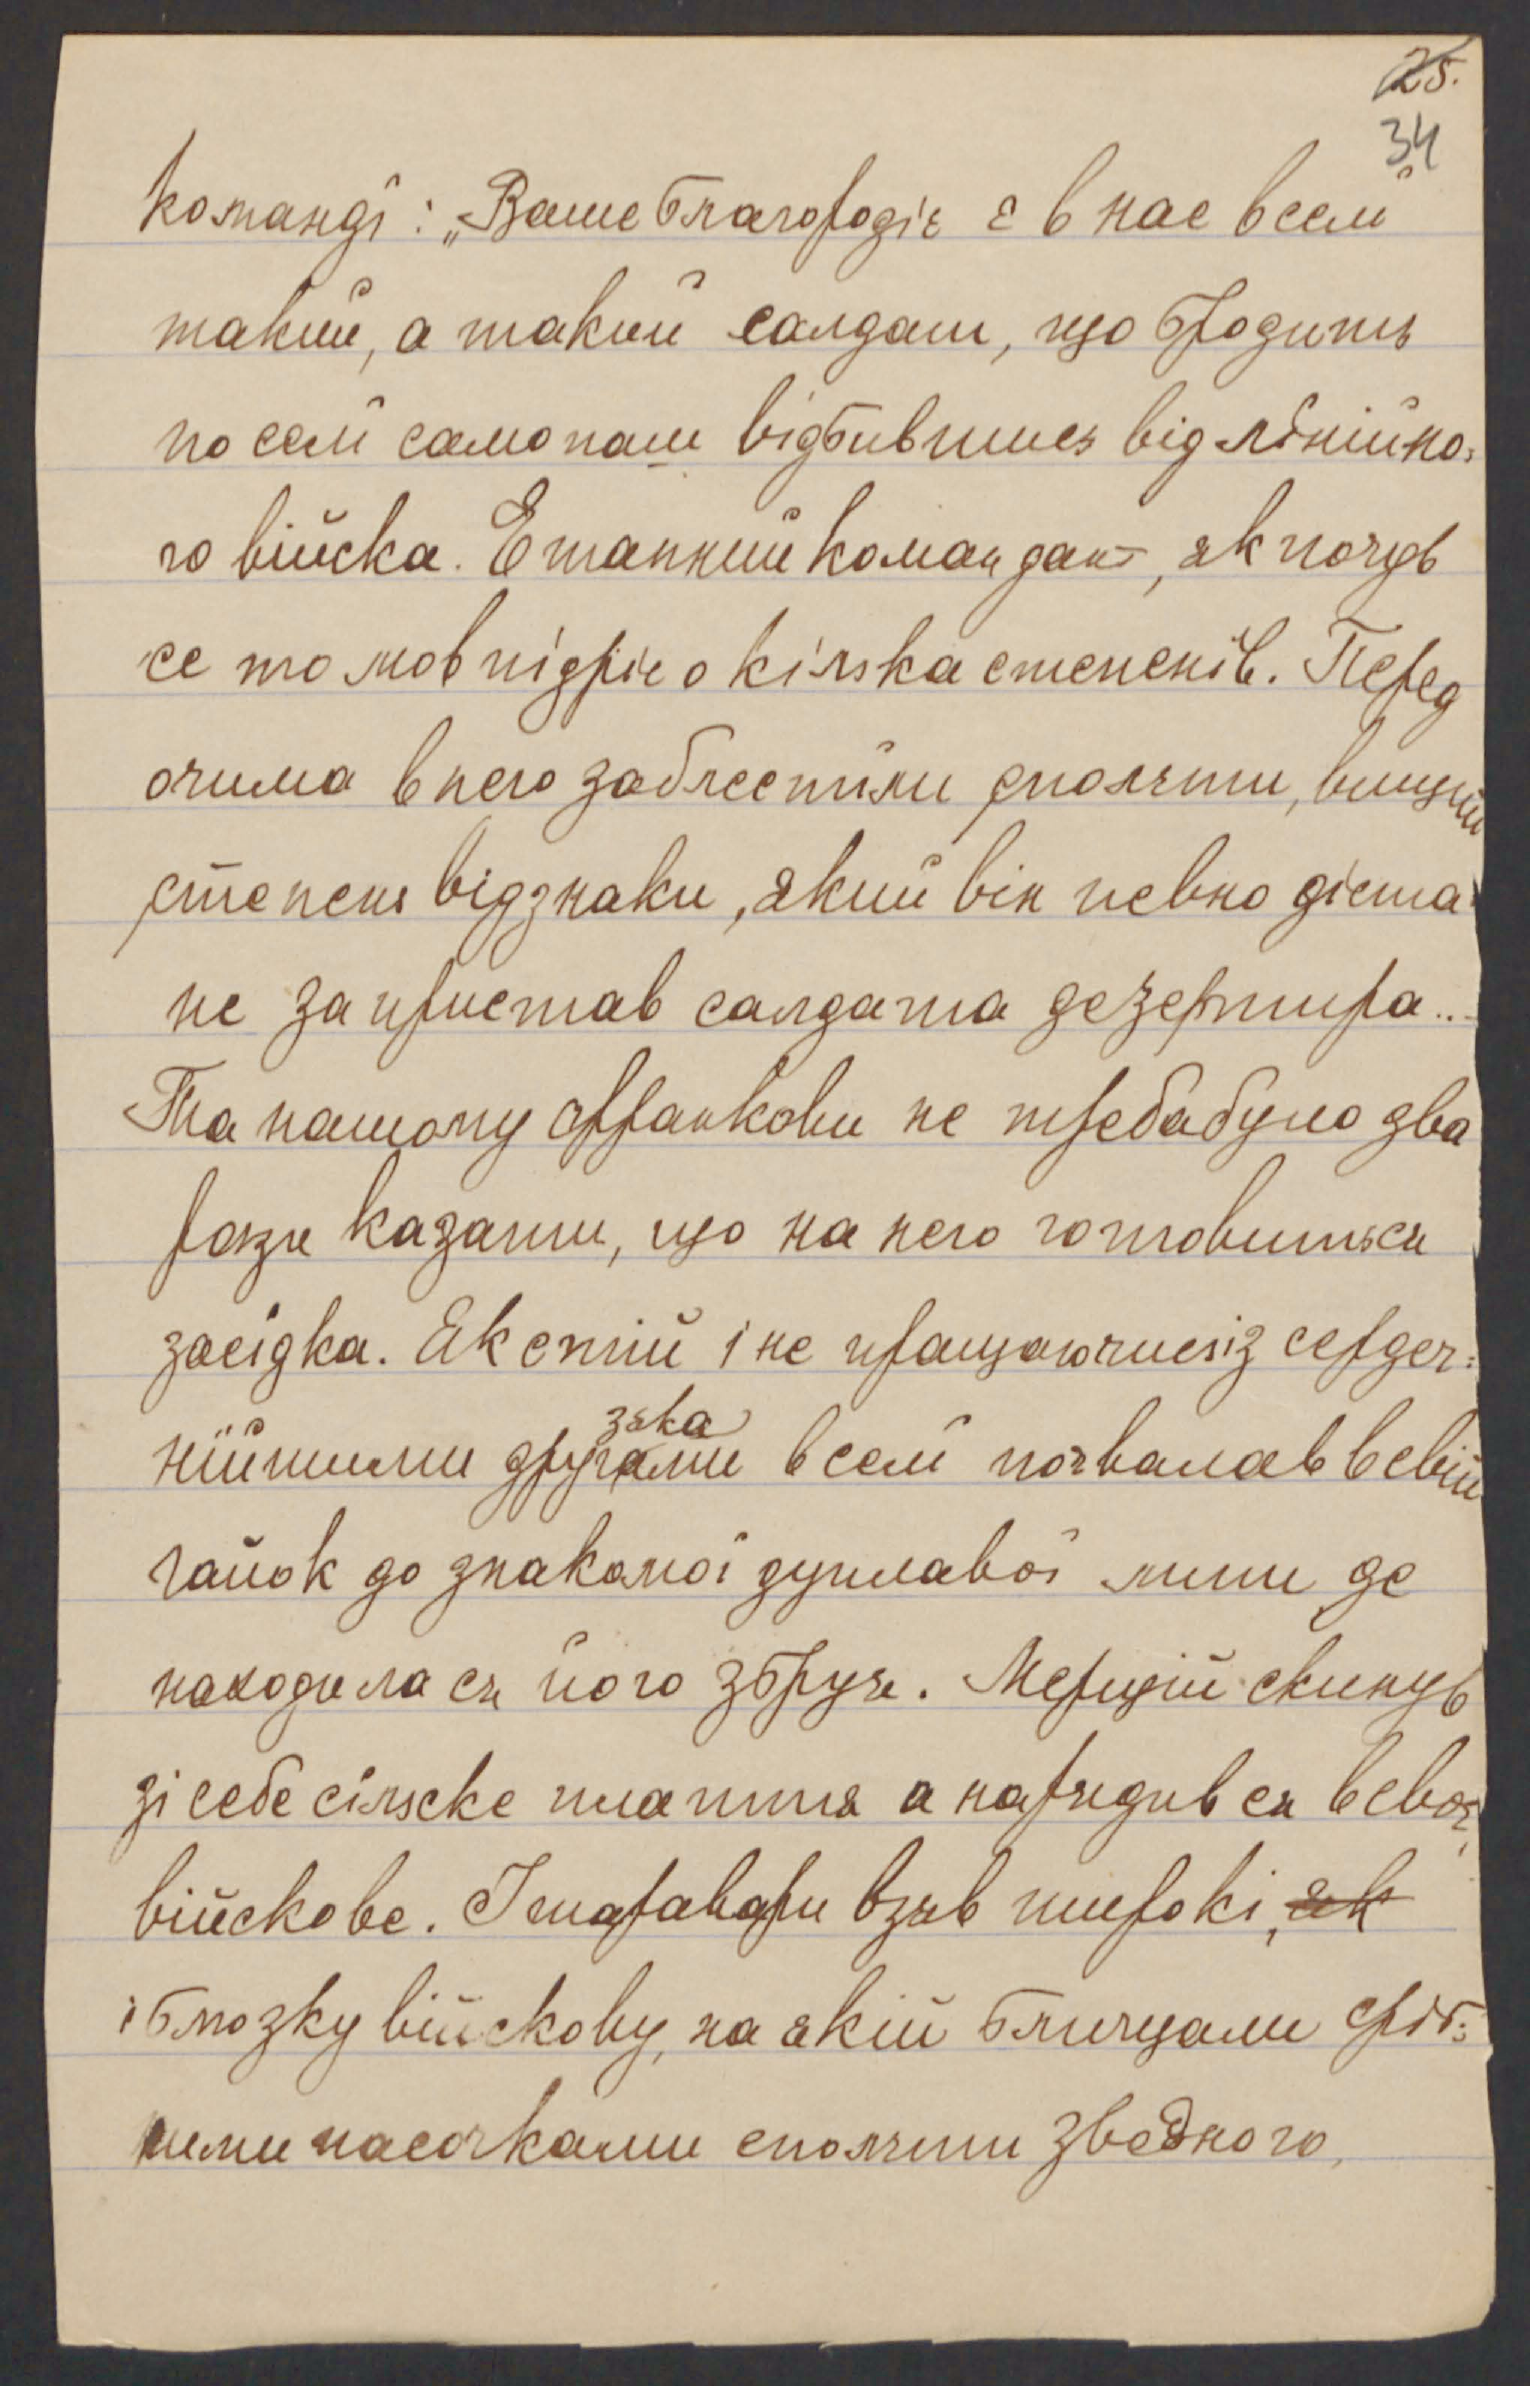 25.
34
команді: „Ваше благородіє є в нас в селі
такий, а такий салдат, що бродить
по селі самопаш відбившись від лінійно=
го війска. Етапний командант, як почув
се то мов підріс о кілька степенів. Перед
очима в него заблестіли еполєти, вищий
степень відзнаки, який він певно діста=
не за пристав салдата дезертира...
Та нашому Франкови не треба було два
рази казати, що на него готовиться
засідка. Як стій і не пращаючись із сердеч=
нійшими другами зака в селі почвалав в свій
гайок до знакомої дуплавої липи де
находила ся його збруя. Мерщій скинув
зі себе сільске плаття а нарядив ся в своє,
війскове. І шаравари взяв широкі, як
і блюзку війскову, на якій блищали сріб=
ними пасочками еполєти зводного,